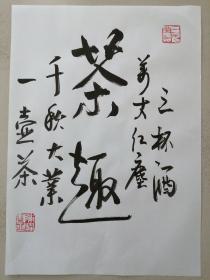 三杯酒
万丈红尘
茶趣
千秋大业
一壶茶